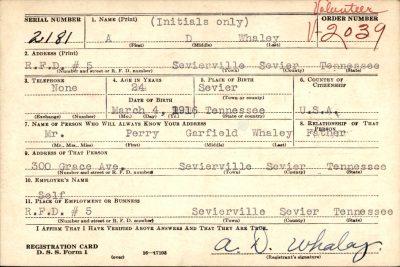 Volunteer
SERIAL NUMBER 1. NAME (Print) (Initials only) ORDER NUMBER
2181 A D Whaley V2039
(First) (Middle) (Last)
2. ADDRESS (Print)
R.F.D. # 5 Sevierville Sevier Tennessee
(Number and street or R. F. D. number) (Town) (County) (State)
3. TELEPHONE 4. AGE IN YEARS 5. PLACE OF BIRTH 6. COUNTRY OF CITIZENSHIP
None 24 Sevier
DATE OF BIRTH (Town or county)
March 4, 1916 Tennessee U.S.A.
(Exchange) (Number) (Mo.) (Day) (Yr.) (State or country)
7. NAME OF PERSON WHO WILL ALWAYS KNOW YOUR ADDRESS 8. RELATIONSHIP OF THAT PERSON
Mr. Perry Garfield Whaley Father
(Mr., Mrs., Miss) (First) (Middle) (Last)
9. ADDRESS OF THAT PERSON
300 Grace Ave. Sevierville Sevier Tennessee
(Number and street or R. F. D. number) (Town) (County) (State)
10. EMPLOYER'S NAME
Self
11. PLACE OF EMPLOYMENT OR BUSINESS
R.F.D. # 5 Sevierville Sevier Tennessee
(Number and street or R. F. D. number) (Town) (County) (State)
I AFFIRM THAT I HAVE VERIFIED ABOVE ANSWERS AND THAT THEY ARE TRUE.
REGISTRATION CARD
D. S. S. Form 1 (over) 16-17105 A. D. Whaley
(Registrant's signature)